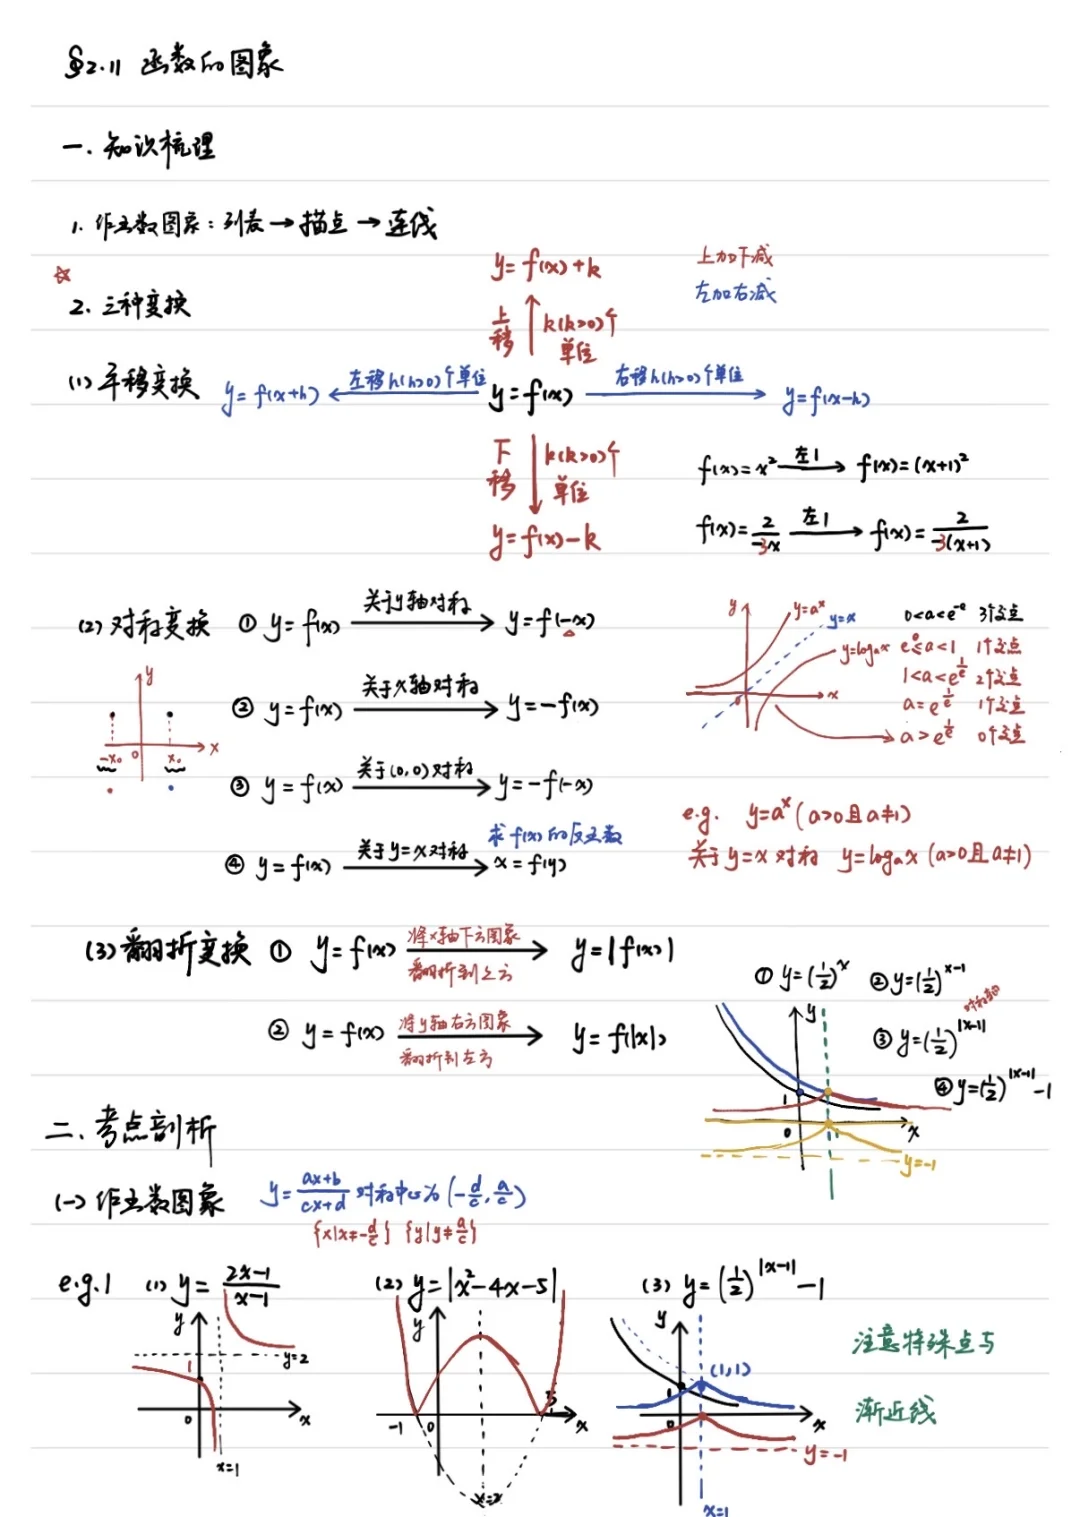 §2.11 函数的图象
一. 知识梳理
1. 作函数图象：列表→描点→连线
☆
2. 三种变换
上加下减
左加右减
(1) 平移变换
y=f(x)+k
上移 k(k>0)个单位
y=f(x+h) ← 左移h(h>0)个单位 y=f(x) 右移h(h>0)个单位 → y=f(x-h)
下移 k(k>0)个单位
y=f(x)-k
f(x)=x² 左1→ f(x)=(x+1)²
f(x)=2/(-3x) 左1→ f(x)=2/(-3(x+1))
(2) 对称变换 ① y=f(x) 关于y轴对称→ y=f(-x)
② y=f(x) 关于x轴对称→ y=-f(x)
③ y=f(x) 关于(0,0)对称→ y=-f(-x)
④ y=f(x) 关于y=x对称→ x=f(y) 求f(x)的反函数
y
-x₀ 0 x₀ x
y y=aˣ y=x
y=logₐx
0 x
0<a<e^-e 3个交点
e^-e≤a<1 1个交点
1<a<e^(1/e) 2个交点
a=e^(1/e) 1个交点
a>e^(1/e) 0个交点
e.g. y=aˣ (a>0且a≠1)
关于y=x对称 y=logₐx (a>0且a≠1)
(3) 翻折变换 ① y=f(x) 将x轴下方图象翻折到上方→ y=|f(x)|
② y=f(x) 将y轴右方图象翻折到左方→ y=f(|x|)
① y=(1/2)^x ② y=(1/2)^(x-1)
对称轴
③ y=(1/2)^|x-1|
④ y=(1/2)^|x-1| -1
y
1
0 x
y=-1
二、考点剖析
(一) 作函数图象 y=(ax+b)/(cx+d) 对称中心为(-d/c, a/c)
{x|x≠-d/c} {y|y≠a/c}
e.g.1 (1) y=(2x-1)/(x-1) (2) y=|x²-4x-5| (3) y=(1/2)^|x-1| -1
y
y=2
1
0 x
x=1
y
-1 0 5 x
x=2
y
(1,1)
1
0 x
y=-1
x=1
注意特殊点与
渐近线